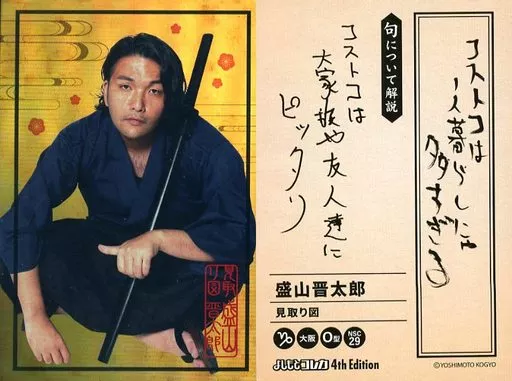 見取り図
盛山
晋太郎
コストコは
一人暮らしにゃ
多すぎる
句について解説
コストコは
大家族や友人達に
ピッタリ
盛山晋太郎
見取り図
大阪
O型
NSC
29
4th Edition
©YOSHIMOTO KOGYO